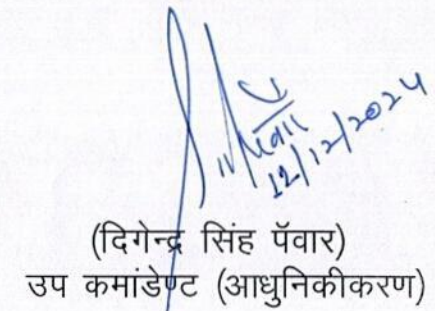 12/12/2024
(दिगेन्द्र सिंह पॅवार)
उप कमांडेण्ट (आधुनिकीकरण)